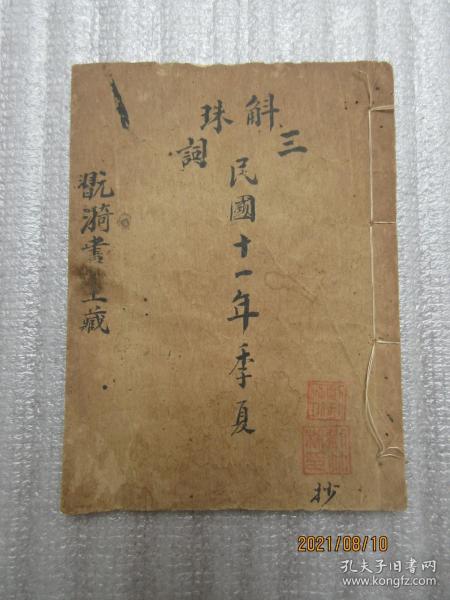 三斛珠詞
民國十一年季夏
抄
翫漪書主藏
2021/08/10
孔夫子旧书网
www.kongfz.com